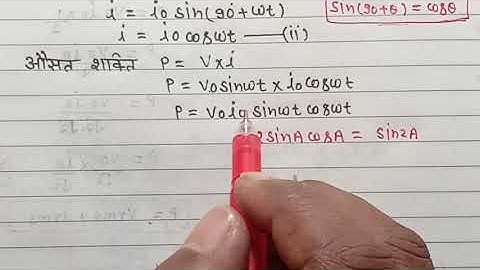 i = i₀ sin(90+ωt)
sin(90+θ) = cosθ
i = i₀ cosωt —(ii)
औसत शक्ति P = V×i
P = V₀sinωt × i₀cosωt
P = V₀i₀ sinωt cosωt
2sinAcosA = sin2A